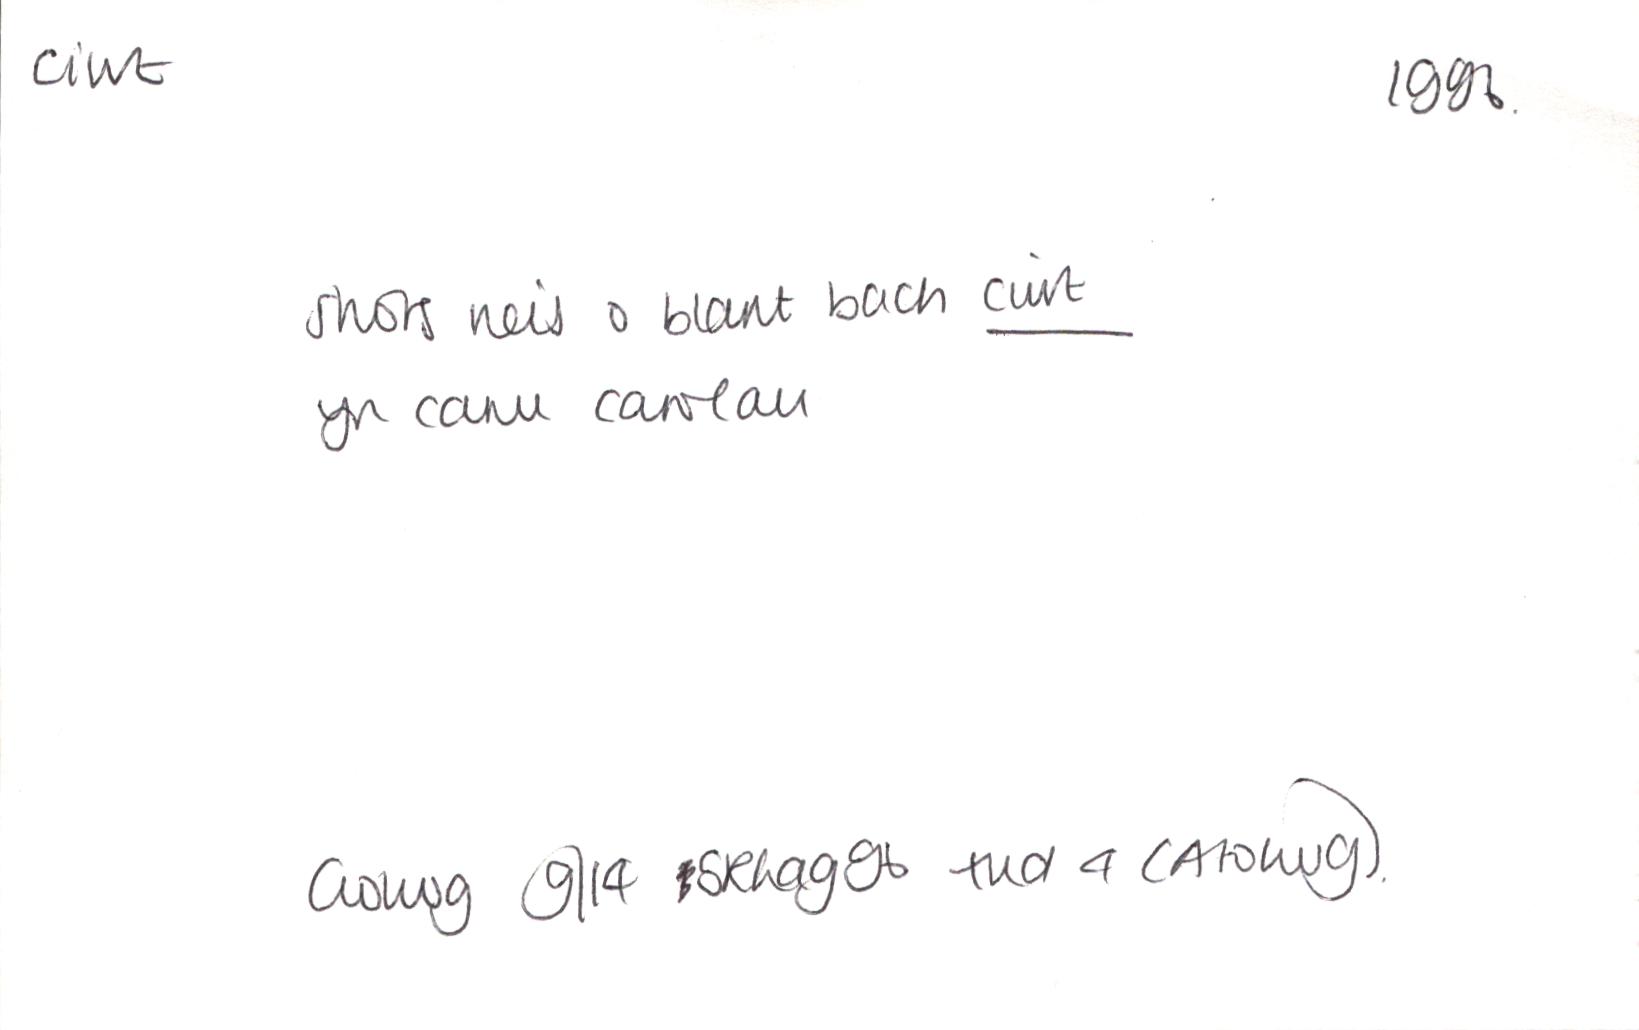 ciwt
1996.
shots neis o blant bach ciwt
yn canu carolau
Golwg 9/14 Rhag 96 tud 4 (Atolwg).